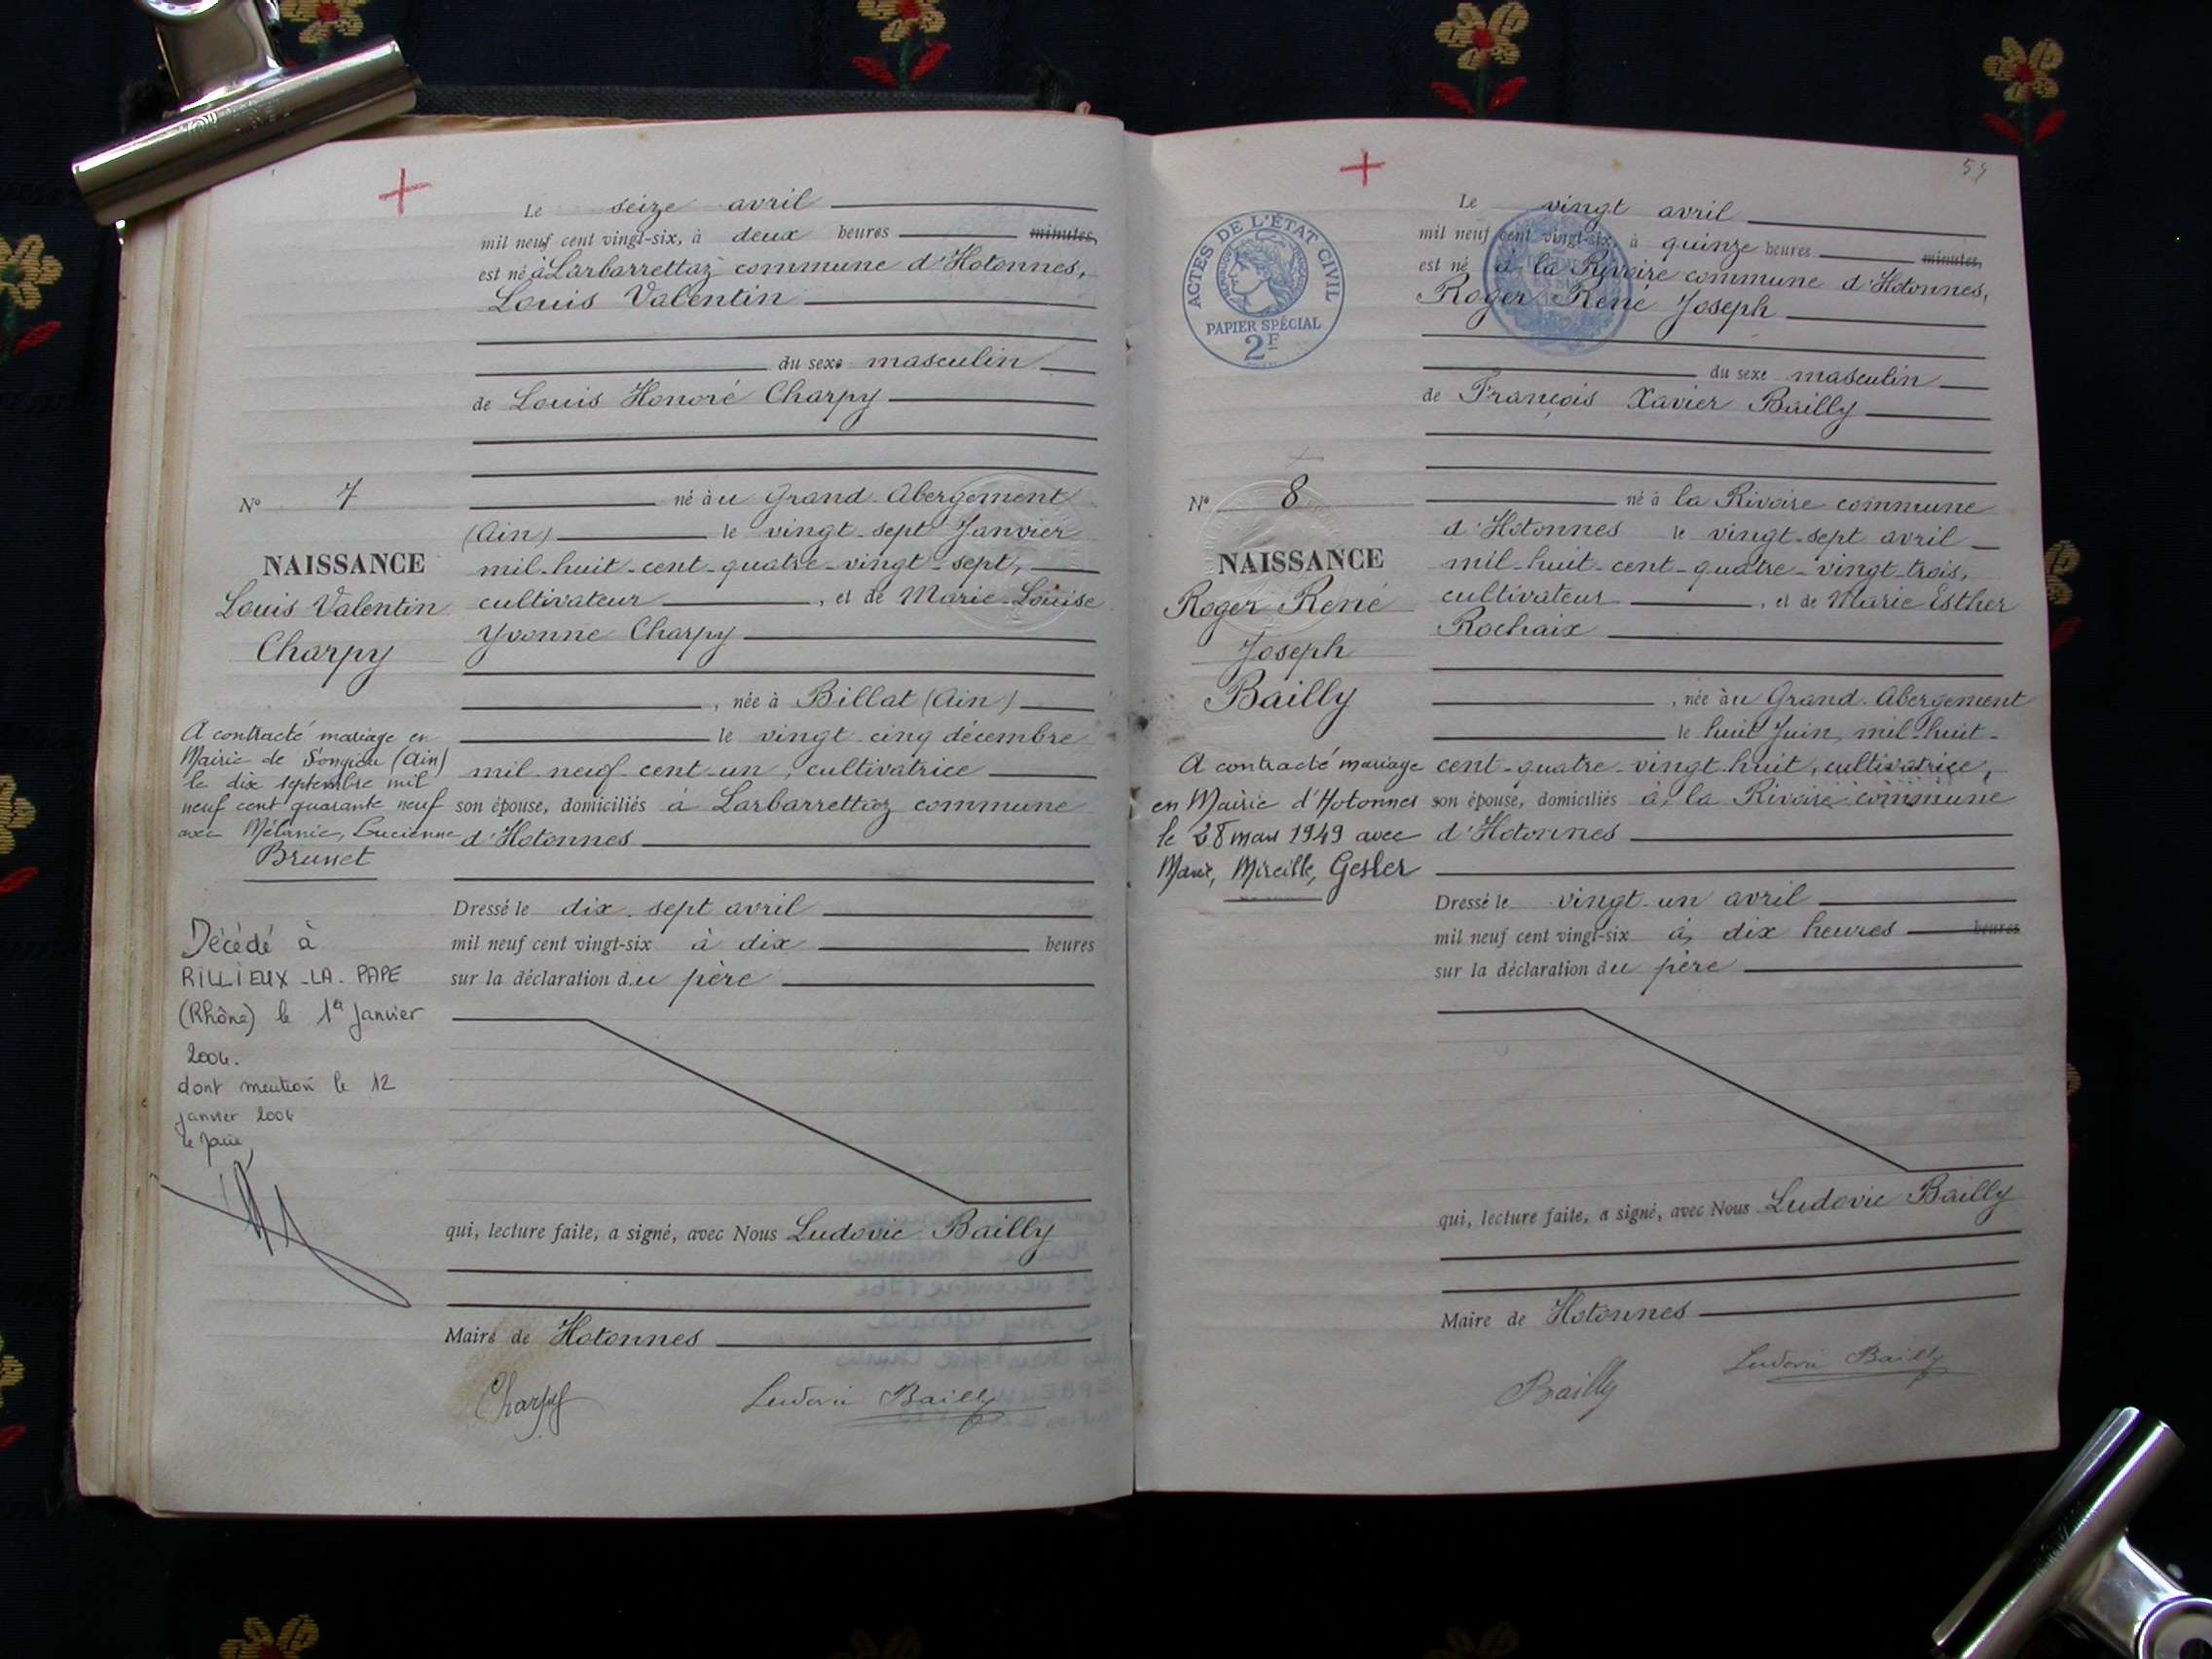 Le seize avril
mil neuf cent vingt-six, à deux heures minutes,
est né à Larbarrettaz commune d'Hotonnes,
Louis Valentin
du sexe masculin
de Louis Honoré Charpy
né au Grand-Abergement
(Ain) le vingt-sept Janvier
mil-huit-cent-quatre-vingt-sept,
cultivateur, et de Marie-Louise
Yvonne Charpy
, née à Billat (Ain)
le vingt-cinq décembre
mil-neuf-cent-un, cultivatrice
son épouse, domiciliés à Larbarrettaz commune
d'Hotonnes
Dressé le dix-sept avril
mil neuf cent vingt-six à dix heures
sur la déclaration du père
qui, lecture faite, a signé, avec Nous Ludovic Bailly
Maire de Hotonnes
Charpy Ludovic Bailly
N° 7
NAISSANCE
Louis Valentin
Charpy
A contracté mariage en
Mairie de Songieu (Ain)
le dix septembre mil
neuf cent quarante neuf
avec Mélanie, Lucienne
Brunet
Décédé à
RILLIEUX-LA-PAPE
(Rhône) le 1er Janvier
2004.
dont mention le 12
janvier 2004
le
54
ACTES DE L'ÉTAT CIVIL
PAPIER SPÉCIAL
2F
Le vingt avril
mil neuf cent vingt-six, à quinze heures minutes,
est né à la Rivoire commune d'Hotonnes,
Roger René Joseph
du sexe masculin
de François Xavier Bailly
né à la Rivoire commune
d'Hotonnes le vingt-sept avril
mil-huit-cent-quatre-vingt-trois,
cultivateur, et de Marie Esther
Rochaix
, née au Grand-Abergement
le huit Juin mil-huit-
cent-quatre-vingt-huit, cultivatrice,
son épouse, domiciliés à la Rivoire commune
d'Hotonnes
Dressé le vingt-un avril
mil neuf cent vingt-six à dix heures heures
sur la déclaration du père
qui, lecture faite, a signé, avec Nous Ludovic Bailly
Maire de Hotonnes
Bailly Ludovic Bailly
N° 8
NAISSANCE
Roger René
Joseph
Bailly
A contracté mariage
en Mairie d'Hotonnes
le 28 mars 1949 avec
Marie, Mireille, Gesler